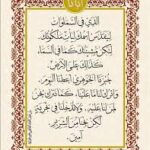 أبانا
الذي في السماوات
ليتقدس اسمك ليأت ملكوتك
لتكن مشيئتك كما في السماء
كذلك على الأرض
خبزنا الجوهري أعطنا اليوم
واترك لنا ما علينا كما نترك نحن
لمن لنا عليه ولا تدخلنا في تجربة
لكن نجنا من الشرير
آمين